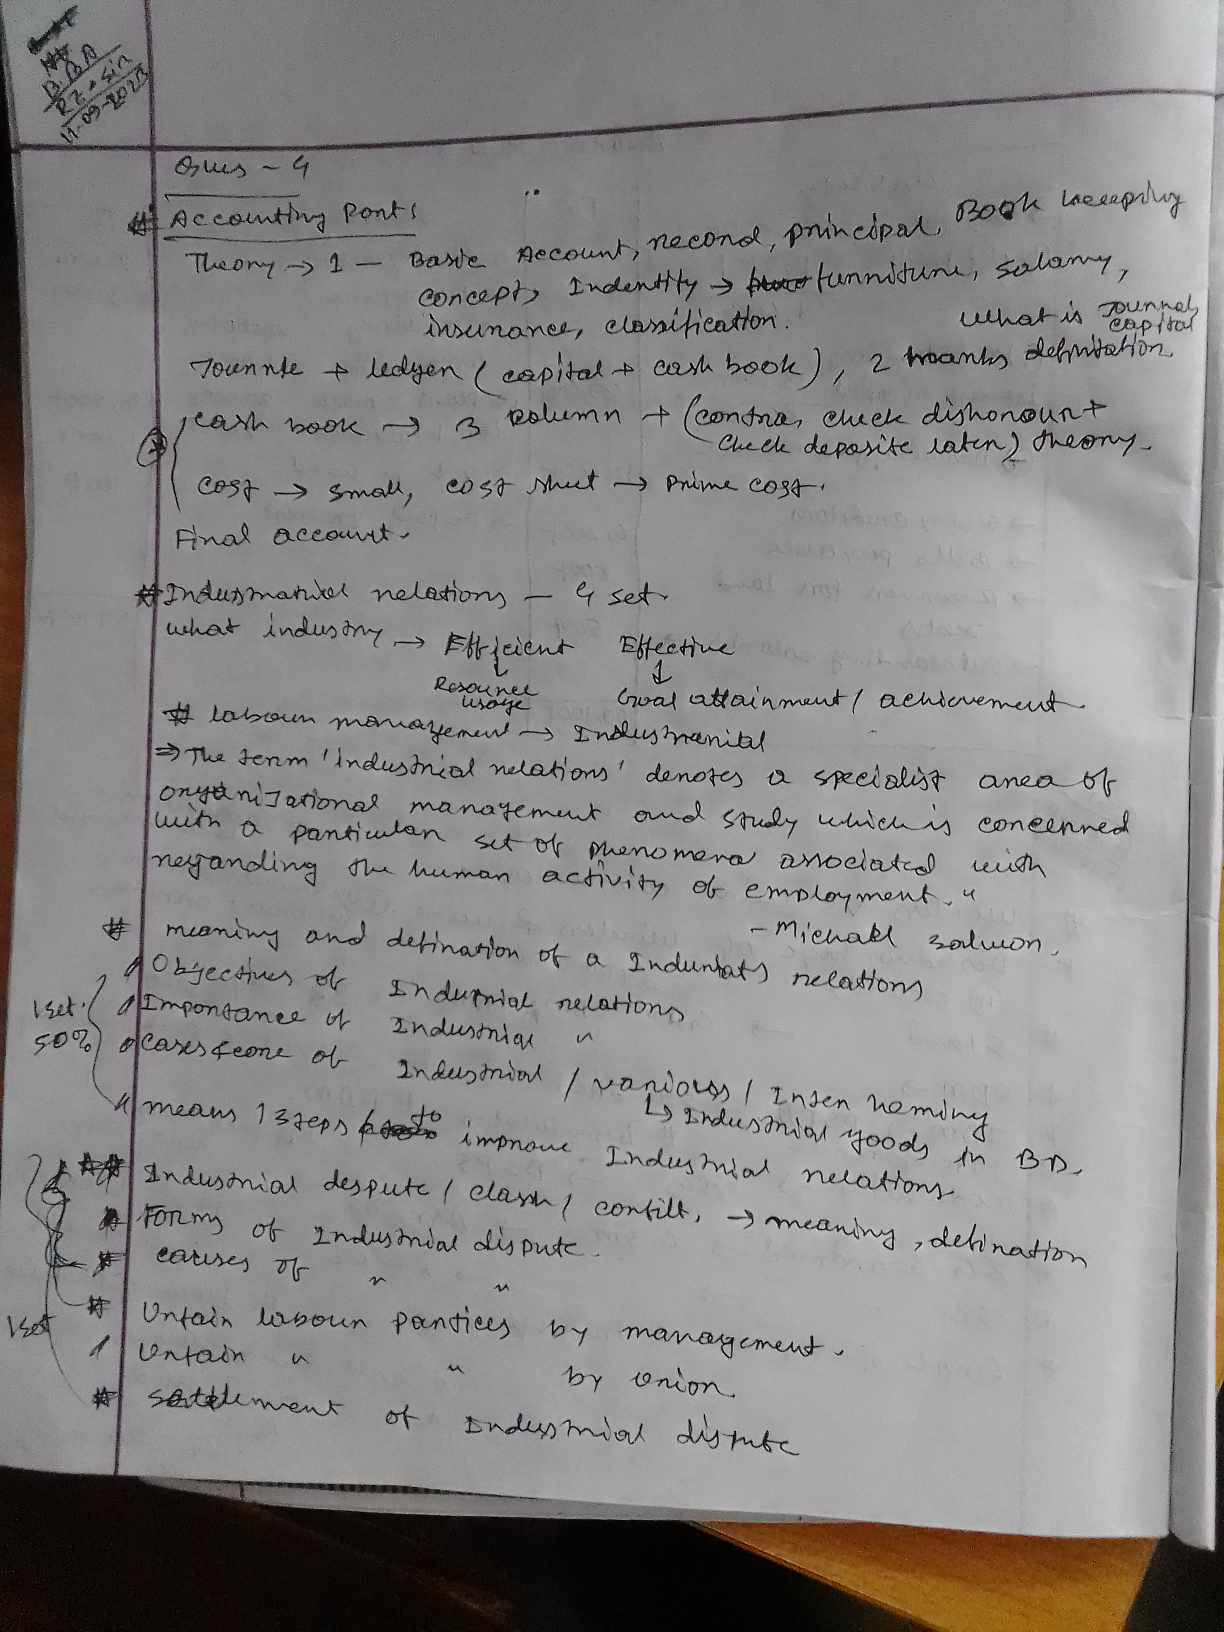 B.B.A
RZ. sin
11-09-2023
Ques - 4
# Accounting Ponts
Theory → 1 - Basic Account, record, principal, Book keeping
concept, Indentity → furniture, salary,
insurance, classification. What is Journal,
capital
+ ledger (capital + cash book), 2 marks definitation.
cash book → 3 column + (contra, check dishonour +
check deposite later) theory.
Cost → small, cost sheet → prime cost.
Final account.
# relations - 4 set.
what industry → Efficient Effective
↓ ↓
Resource
usage
Goal attainment / achievement
# labour management →
⇒ The term 'industrial relations' denotes a specialist area of
organizational management and study which is concerned
with a particular set of phenomena associated with
regarding the human activity of employment."
- Michael salmon.
# meaning and defination of a relations
Objectives of Industrial relations
Importance of Industrial "
of Industrial / various /
↳ Industrial goods in BD.
1 set.
50%
means / steps to improve Industrial relations
Industrial despute / clash / , → meaning, defination
Forms of Industrial dispute.
# causes of " "
# Unfair labour by management.
Unfair " " by Union.
# settlement of Industrial dispute
1 set